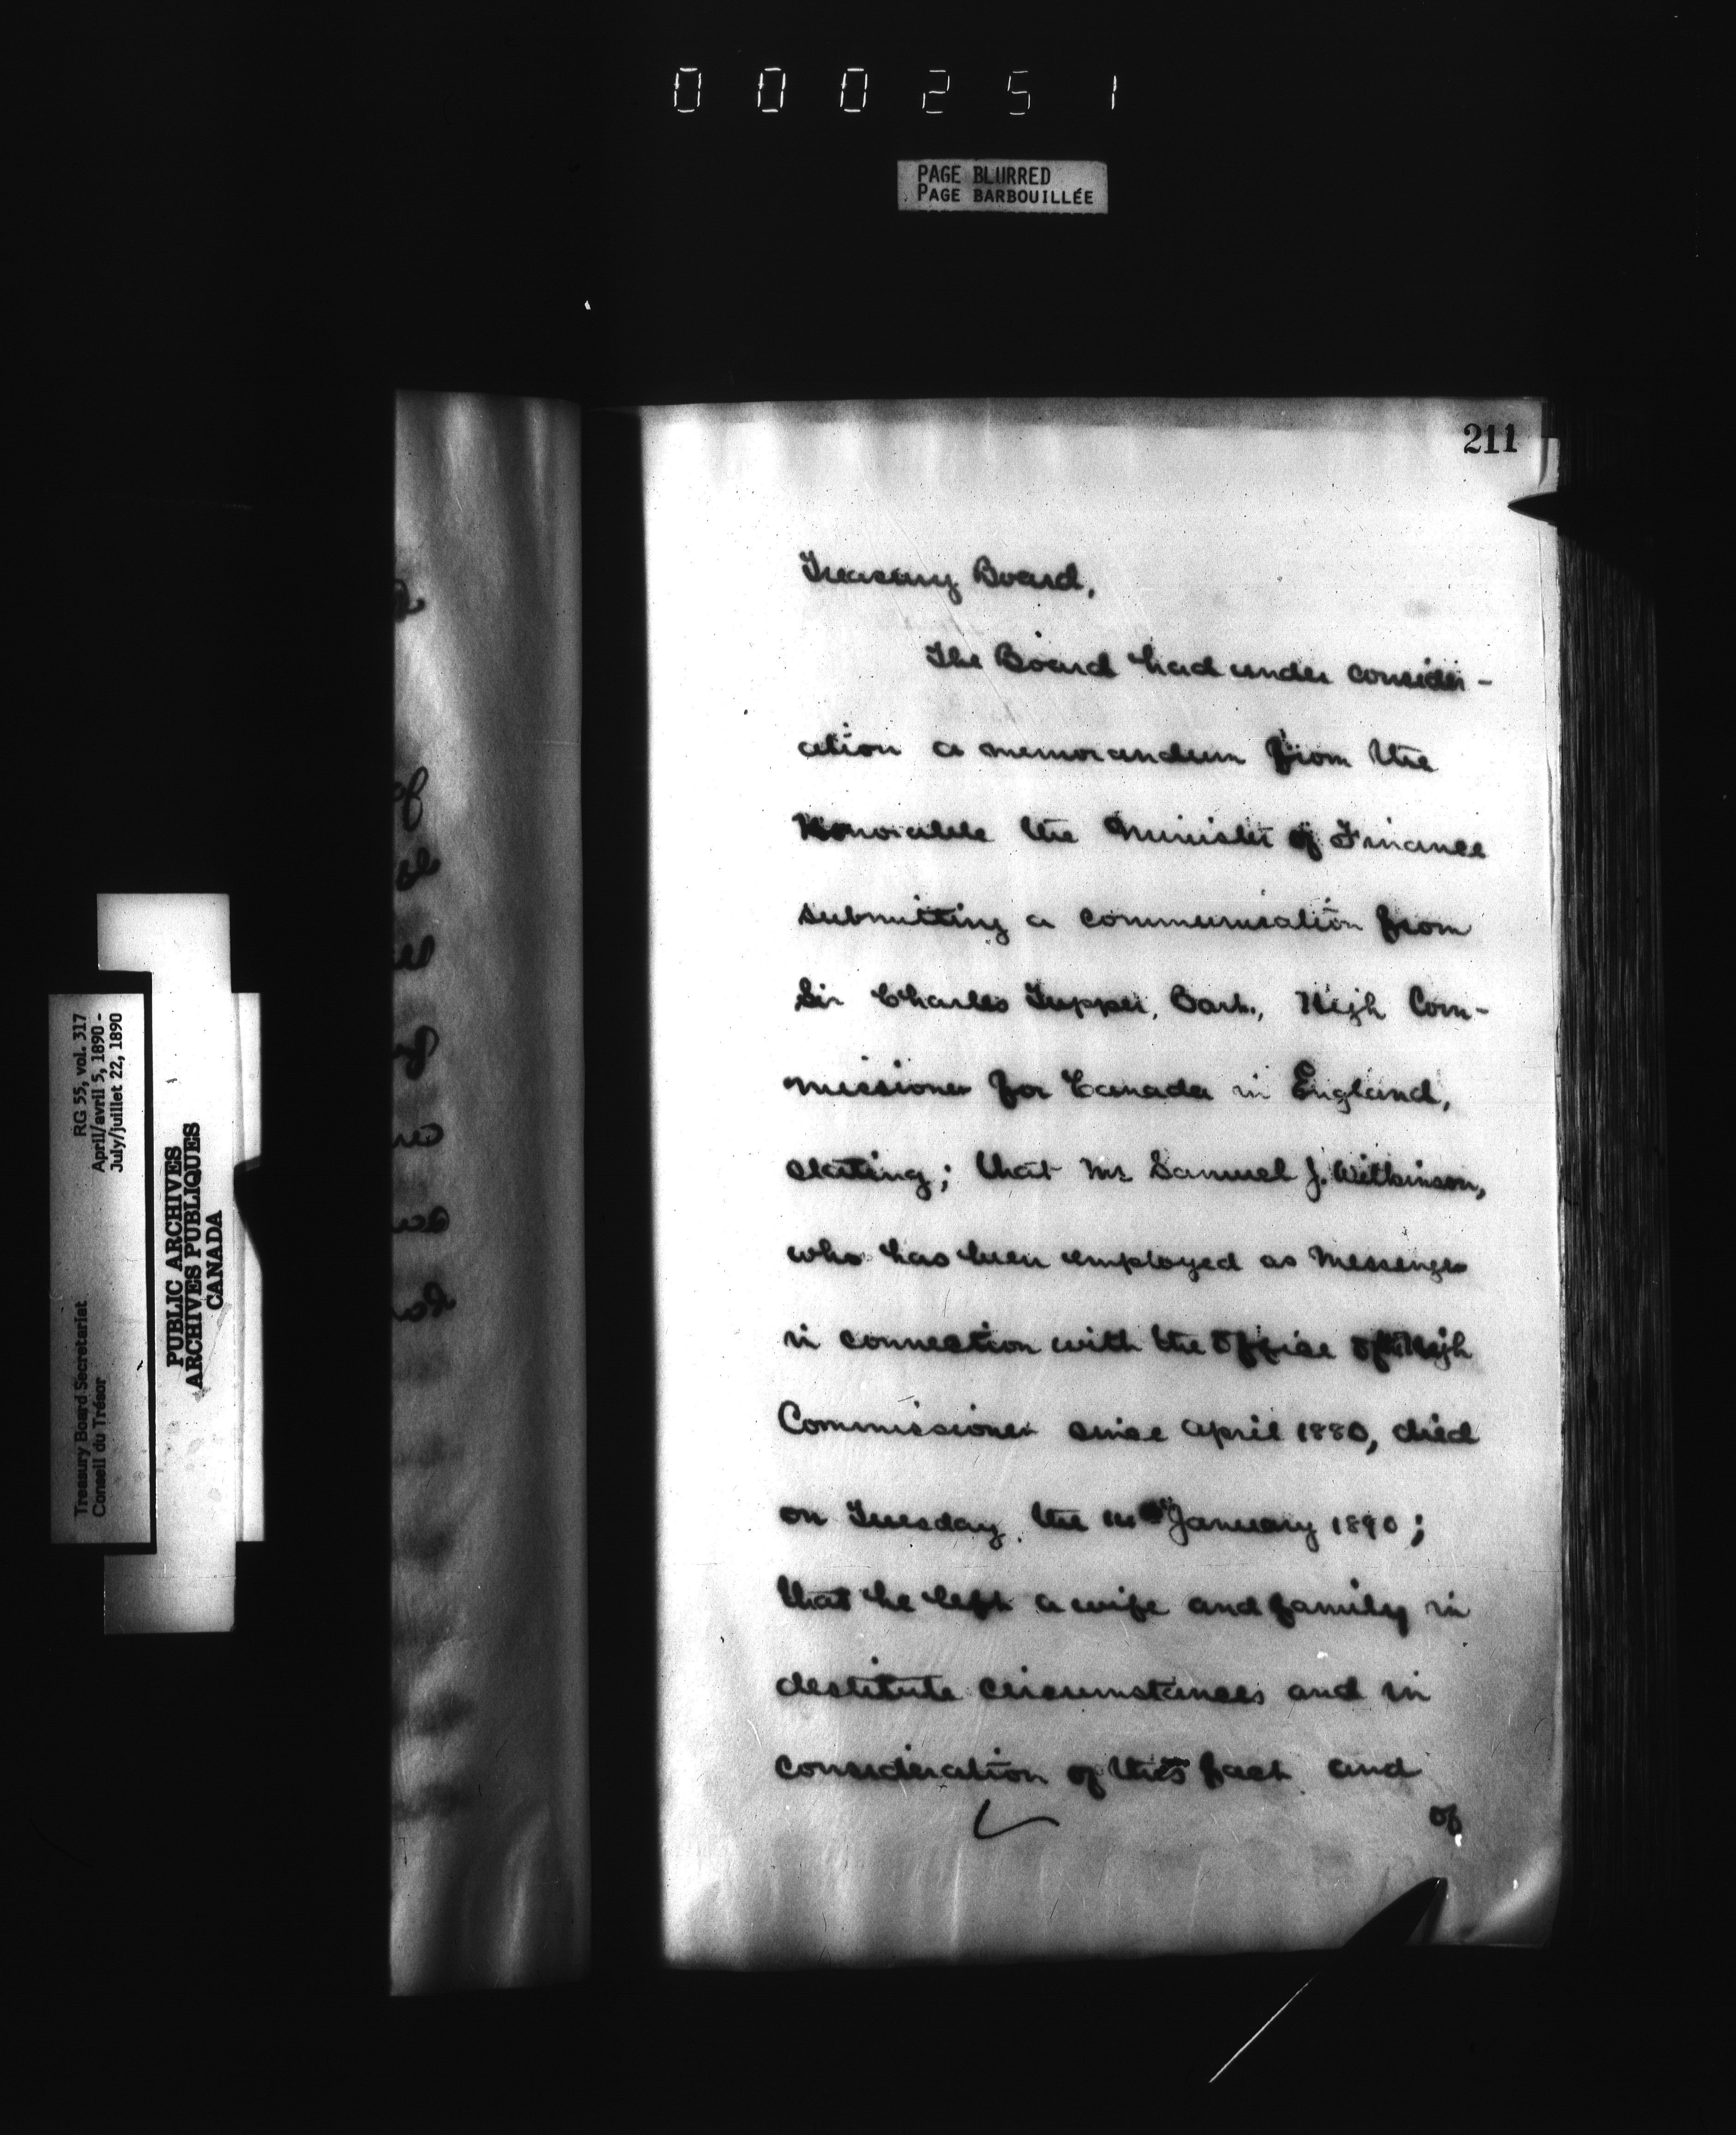 000251
PAGE BLURRED
PAGE BARBOUILLÉE
211
Treasury Board,
The Board had under consider-
ation a memorandum from the
Honorable the Minister of Finance
submitting a communication from
Sir Charles Tupper, Bart., High Com-
missioner for Canada in England,
stating; that Mr Samuel J. Wilkinson,
who has been employed as Messenger
in connection with the Office of the High
Commissioner since April 1880, died
on Tuesday, the January 1890;
that he left a wife and family in
destitute circumstances and in
consideration of this fact and
of
RG 55, vol. 317
April/avril 5, 1890 -
July/juillet 22, 1890
Treasury Board Secretariat
Conseil du Trésor
PUBLIC ARCHIVES
ARCHIVES PUBLIQUES
CANADA